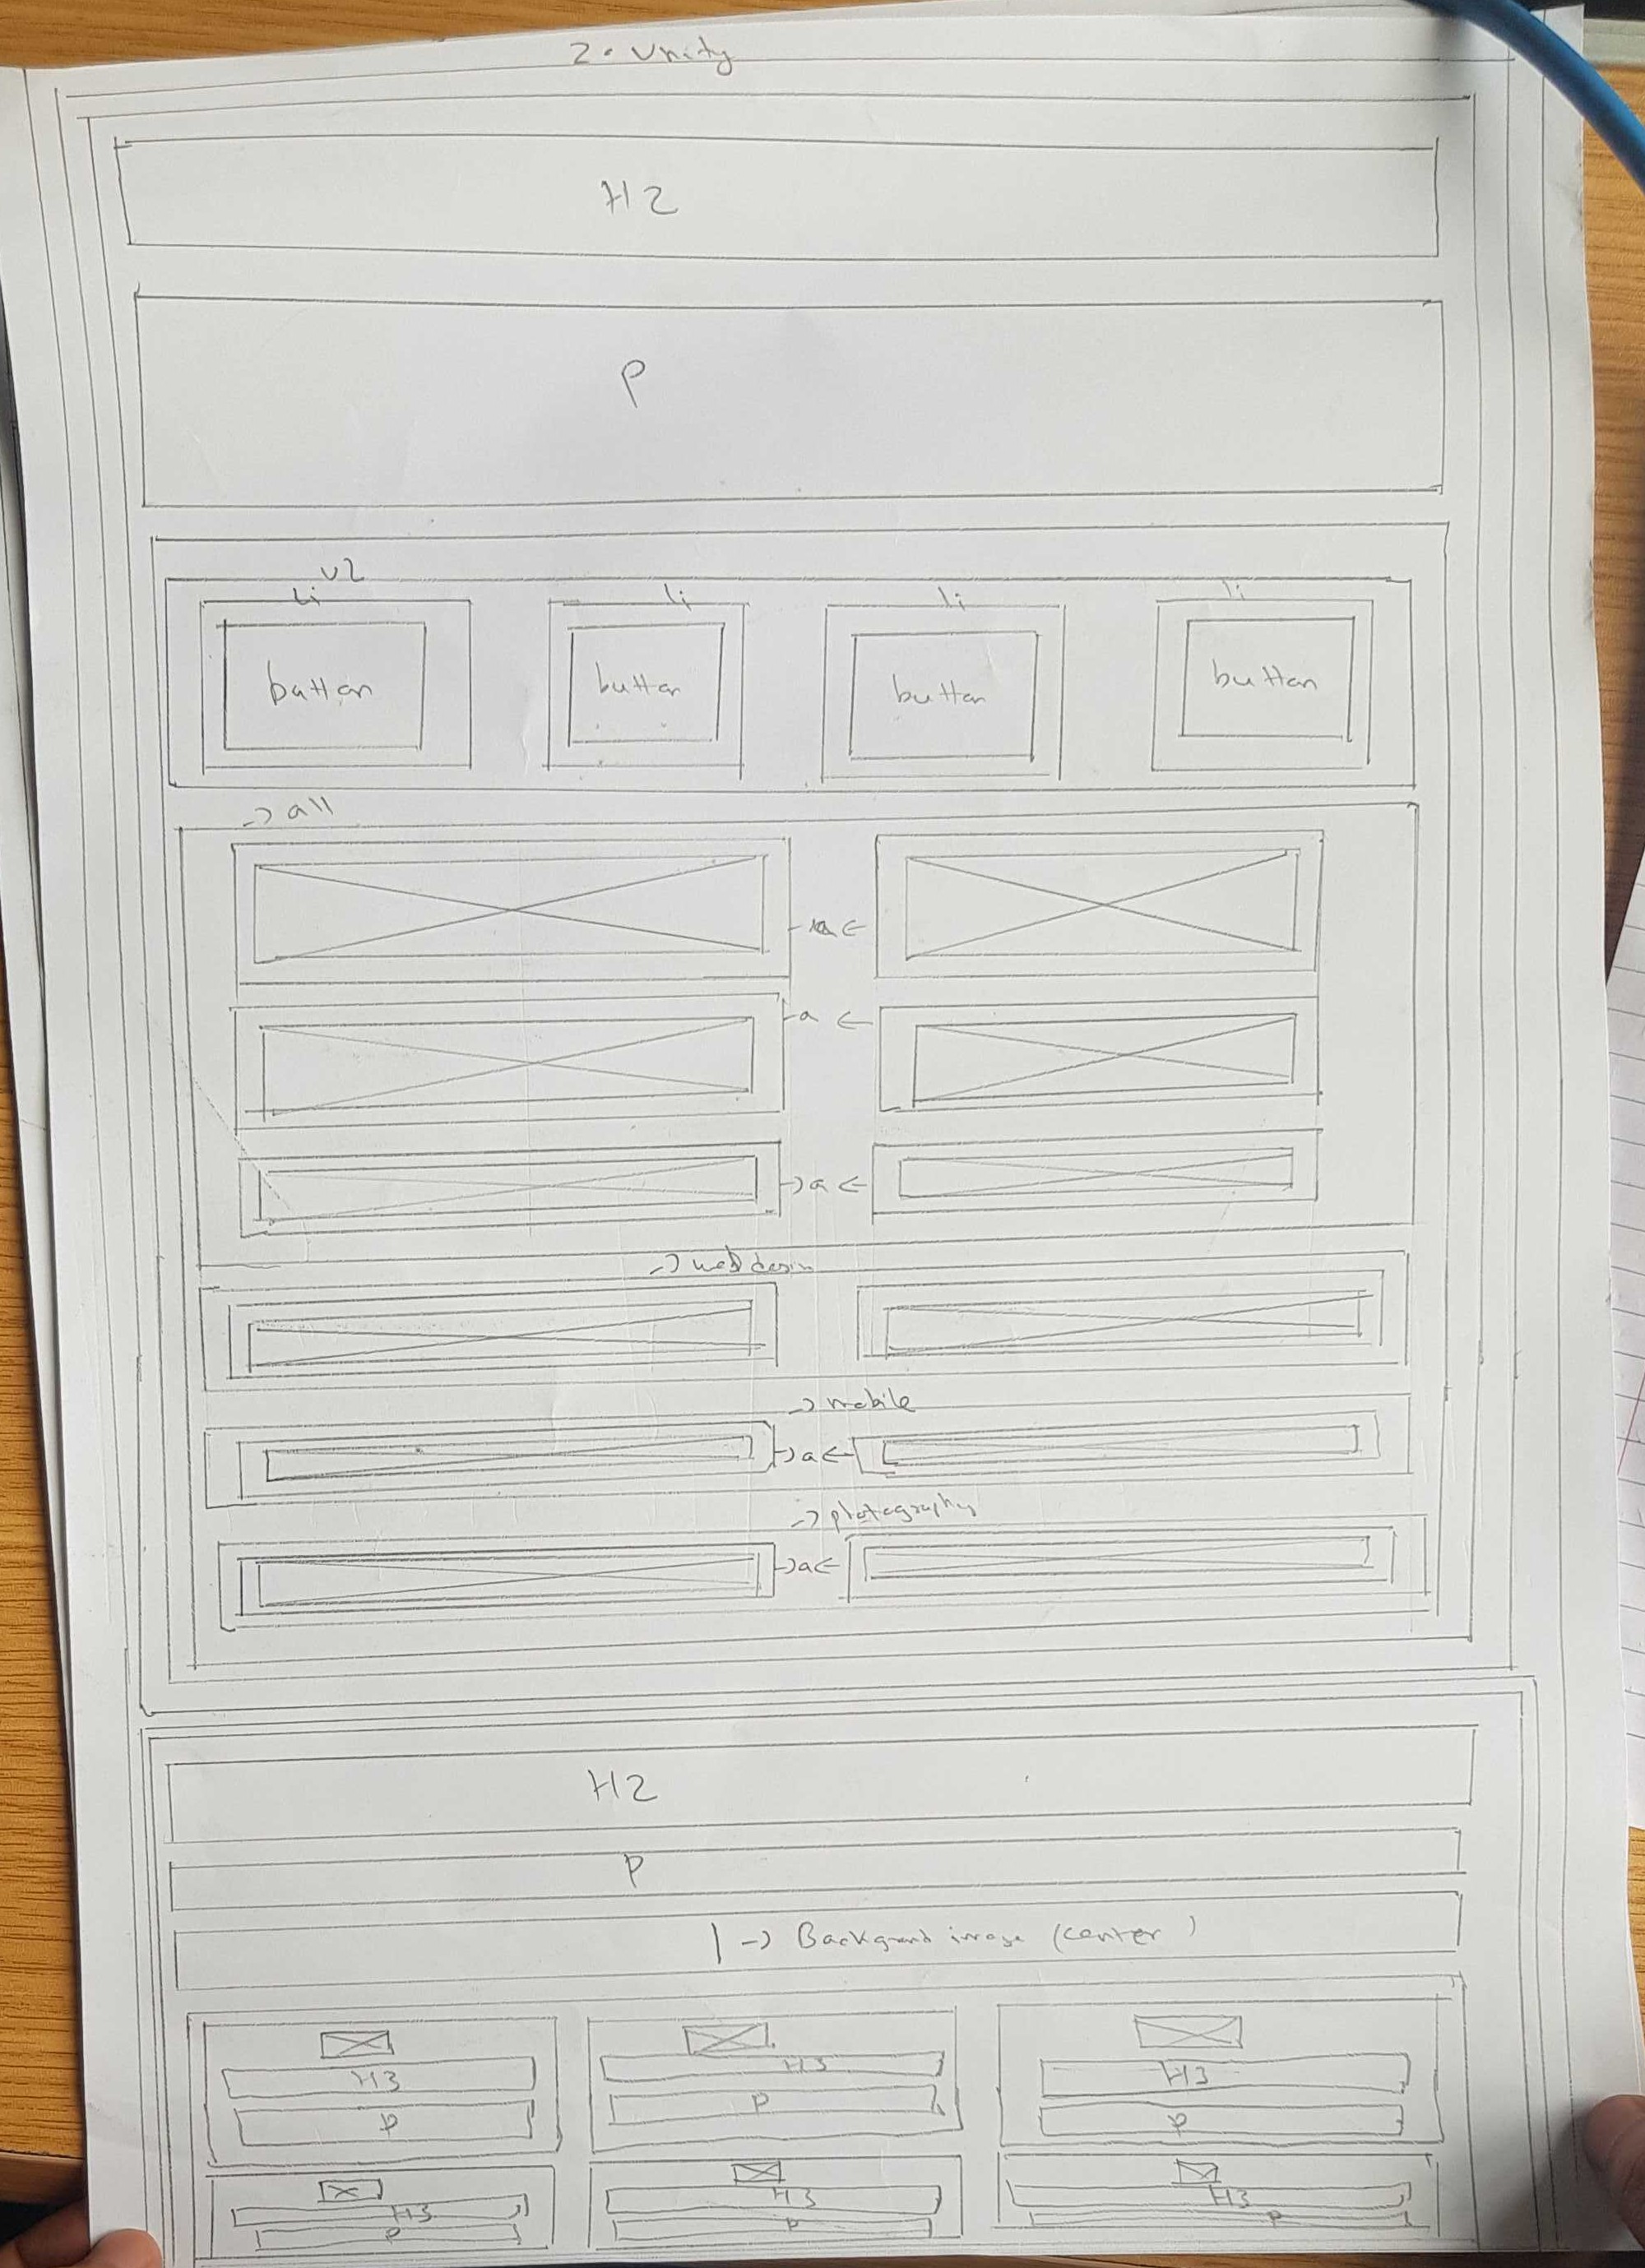 2. Unity
H2
P
li li li li
button button button button
-> all
a <-
a <-
-> a <-
-> mobile
-> a <-
-> a <-
H2
P
| -> Background image (center)
H3 H3 H3
P P P
H3 H3 H3
P P P